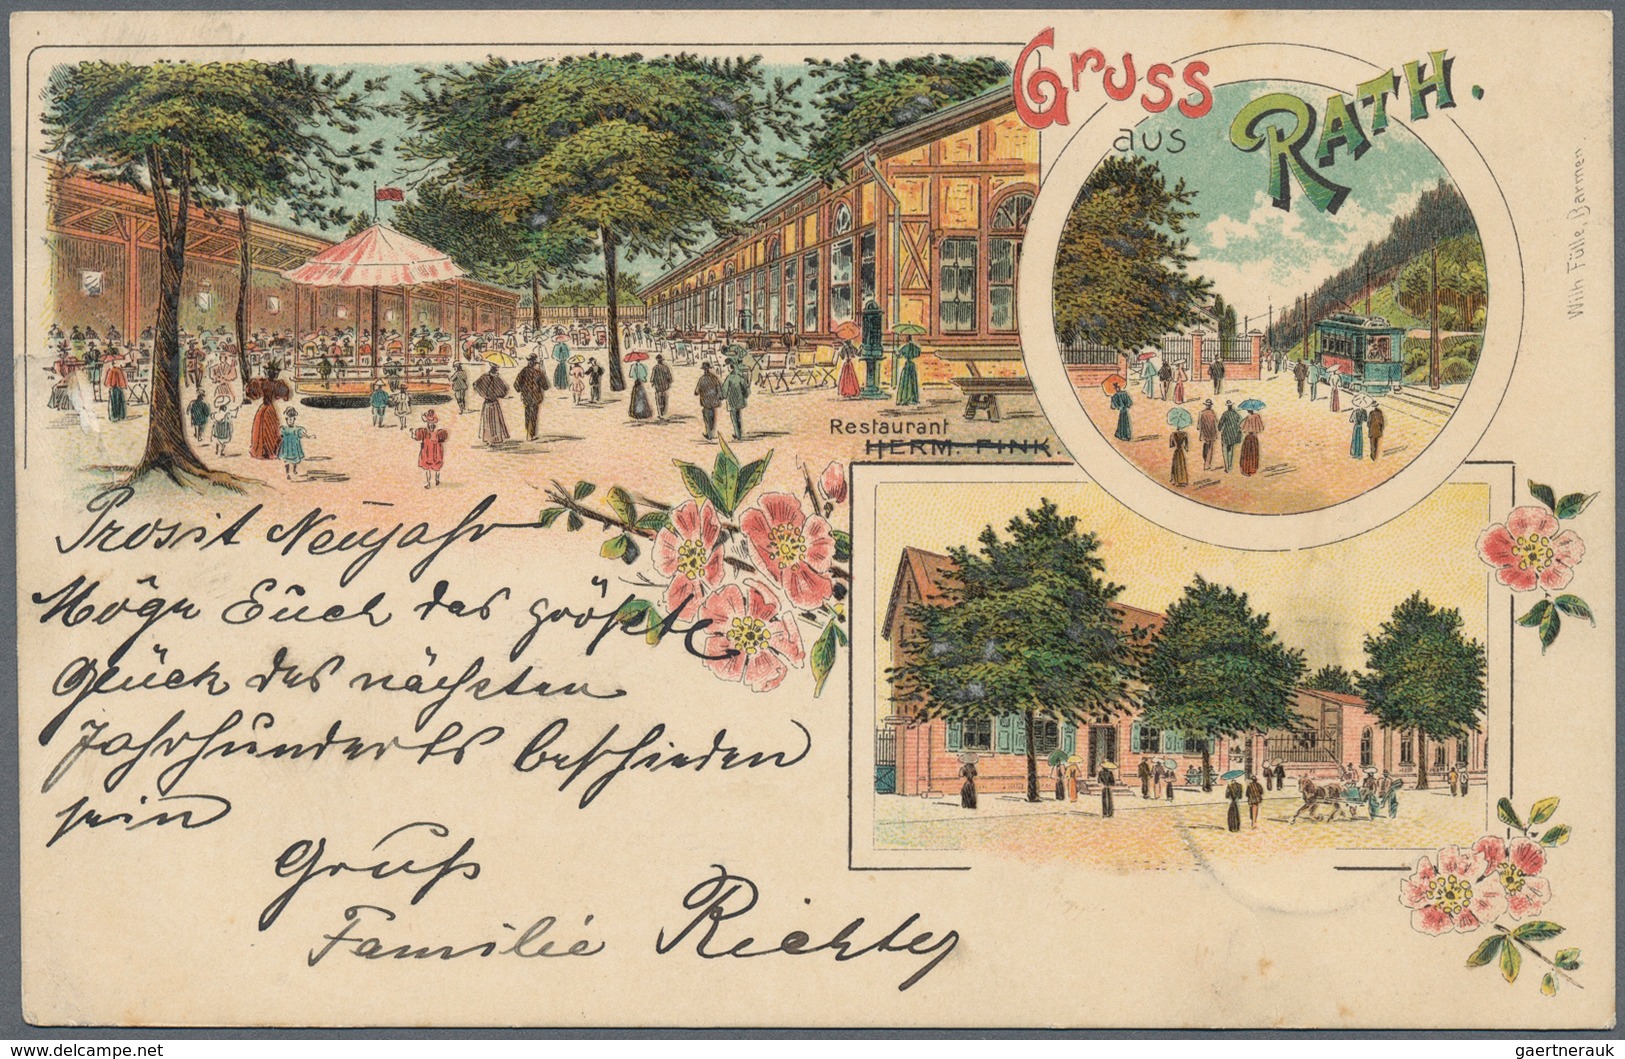 Gruss
aus
RATH.
Wilh Fülle, Barmen
Restaurant
HERM. FINK.
Prosit Neujahr
Möge Euch das größte
Glück des nächsten
Jahrhunderts beschieden
sein
Gruß
Familie Richter
www.delcampe.net
gaertnerauk